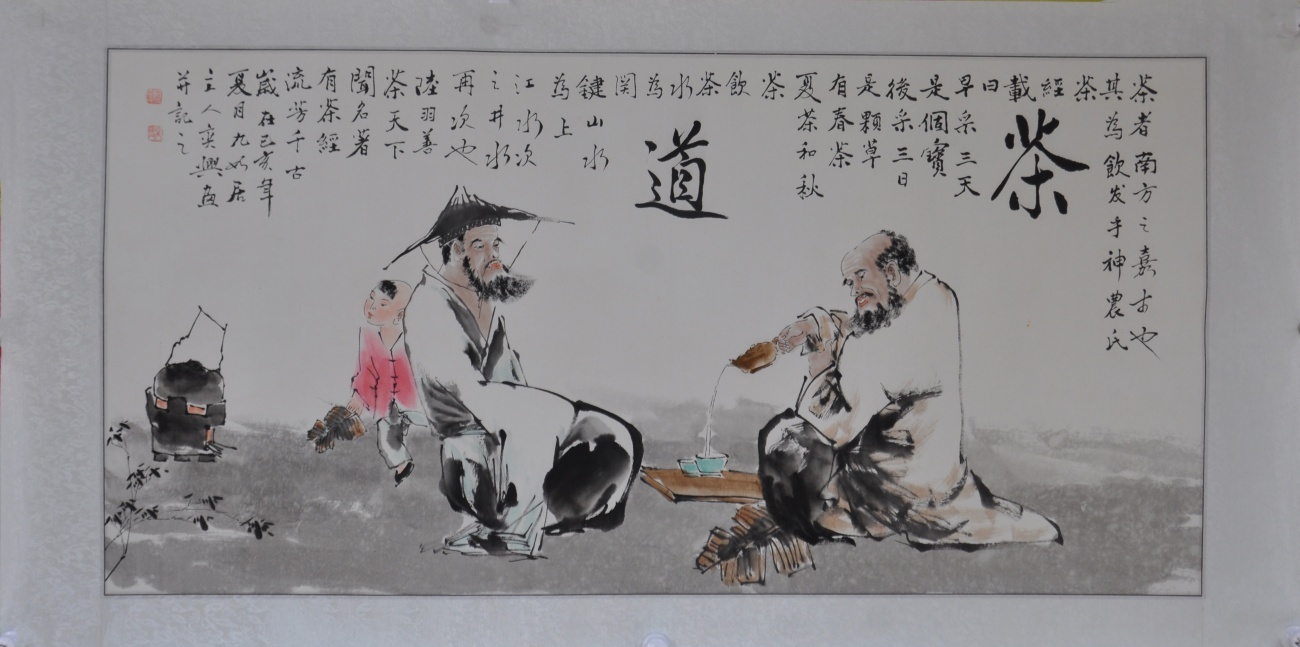 茶
道
茶者南方之嘉木也
其為飲发乎神農氏
茶
經
載
曰
早采三天
是個寶
後采三日
是顆草
有春茶
夏茶和秋
茶
飲
茶
水
為
関
鍵山水
為上
江水次
之井水
再次也
陸羽善
茶天下
聞名著
有茶經
流芳千古
歲在己亥年
夏月九如居
主人奕興画
并記之